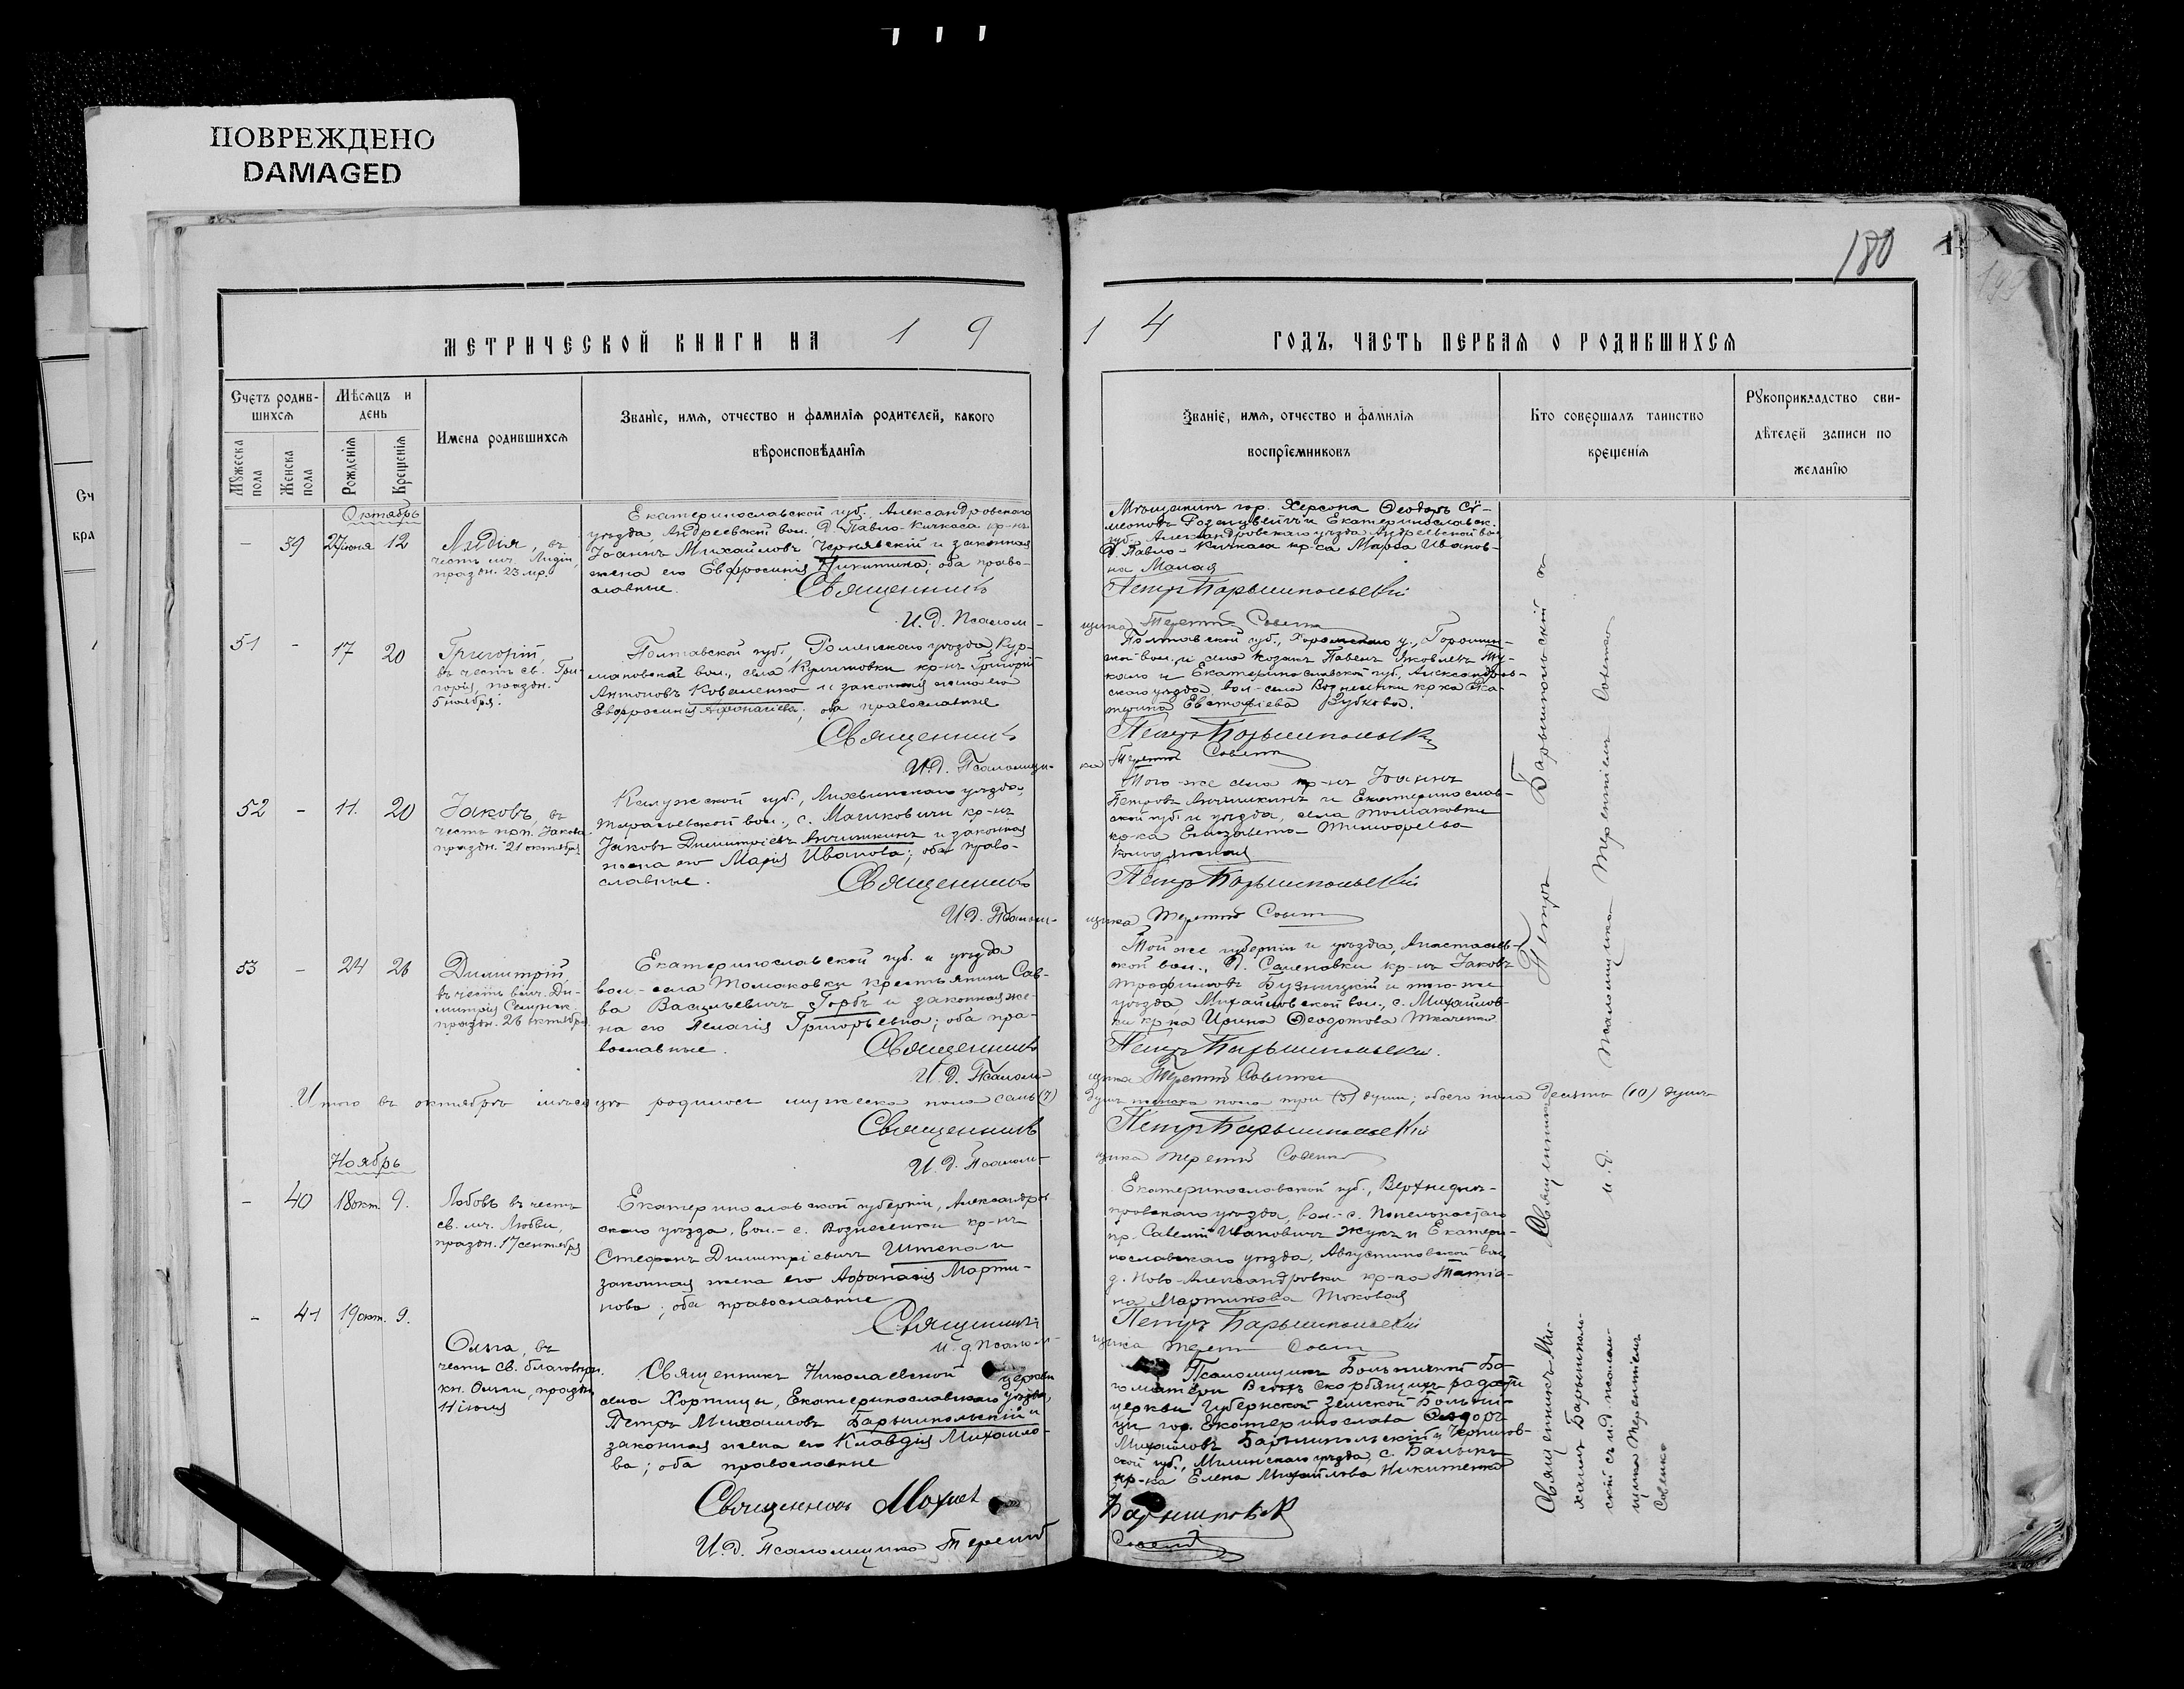 ПОВРЕЖДЕНО
DAMAGED
180
МЕТРИЧЕСКОЙ КНИГИ НА 1 9
1 4 ГОДЪ, ЧАСТЬ ПЕРВАЯ О РОДИВШИХСЯ
Счетъ родив-
шихся
Мѣсяцъ и
день
Мꙋжеска
пола
Женска
пола
Рожденія
Крещенія
Имена родившихся
Званіе, имя, отчество и фамилія родителей, какого
вѣроисповѣданія
Званіе, имя, отчество и фамилія
воспріемниковъ
Кто совершалъ таинство
крещенія
Рꙋкоприкладство сви-
дѣтелей записи по
желанію
Октябрь
- 39 27 июня 12
Лидія, въ
честь мч. Лидіи,
праздн. 23 мр.
Екатеринославской губ., Александровскаго
уѣзда, Андреевской вол. д. Павло-Кичкаса кр-нъ
Іоаннъ Михайловъ Чернявскій и законная
жена его Евфросинія Никитина; оба право-
славные.
Священникъ
И.д. Псалом-
Мѣщанинъ гор. Херсона Ѳеодоръ Си-
меоновъ Розенцвейгъ и Екатеринославск.
губ. Александровскаго уѣзда Андреевской вол.
д. Павло-Кичкаса кр-ка Марѳа Иванов-
на Малая
Петръ Барышпольскій
щика Терентій Совенко
51 - 17 20
Григорій,
въ честь св. Гри-
горія, праздн.
5 ноября.
Полтавской губ., Роменскаго уѣзда, Кур-
мановской вол., села кр-нъ Григорій
Антоновъ Коваленко и законная жена его
Евфросинія Афонасіева; оба православные
Священникъ
И.д. Псаломщи-
Полтавской губ., Хорольскаго у., Горошин-
ской вол. и села козакъ Павелъ Яковлевъ
и Екатеринославской губ., Александров-
скаго уѣзда вол-села Вознесенки кр-ка Ека-
терина Евстафіева Зубкова.
Петръ Барышпольскій
ка Терентій Совенко
52 - 11. 20
Іаковъ, въ
честь прп. Іакова
праздн. 21 октября
Калужской губ., Лихвинскаго уѣзда,
вол., с. кр-нъ
Іаковъ Димитріевъ Анчишкинъ и законная
жена его Марія Иванова; оба право-
славные.
Священникъ
И.д. Псалом-
Того-же села кр-нъ Іоаннъ
Петровъ Анчишкинъ и Екатеринослав-
ской губ. и уѣзда, села Томаковки
кр-ка Елизавета Тимофеева
Петръ Барышпольскій
щика Терентій Совенко
53 - 24 26
Димитрій,
въ честь вмч. Ди-
митрія Солунск.
праздн. 26 октября.
Екатеринославской губ. и уѣзда
вол.-села Томаковки крестьянинъ Сав-
ва Васильевичъ Горбъ и законная же-
на его Пелагія Григорьевна; оба пра-
вославные.
Священникъ
И.д. Псалом-
Той же губерніи и уѣзда, Анастасьев-
ской вол., д. Семеновки кр-нъ Іаковъ
Трофимовъ Бузницкій и того-же
уѣзда, Михайловской вол., с. Михайлов-
ки кр-ка Ирина Ѳеодотова Ткаченко
Петръ Барышпольскій.
щика Терентій Совенко
Итого въ октябрѣ мѣсяцѣ родилось мужеска пола семь (7)
душъ женска пола три (3) души; обоего пола десять (10) душъ
Священникъ
Петръ Барышпольскій
И.д. Псалом-
щика Терентій Совенко
Ноябрь
- 40 18 окт. 9.
Любовь въ честь
св. мч. Любви,
праздн. 17 сентября
Екатеринославской губерніи, Александров-
скаго уѣзда, вол.-с. Вознесенки кр-нъ
Стефанъ Димитріевичъ Штепа и
законная жена его Афанасія Марти-
нова; оба православные
Священникъ
И.д. Псалом-
Екатеринославской губ., Верхнеднѣ-
провскаго уѣзда, вол.-с. Попельнастаго
кр. Савелій Ивановичъ Жукъ и Екатери-
нославскаго уѣзда, Августиновской вол.
д. Ново-Александровки кр-ка Татіа-
на Мартинова Токовая
Петръ Барышпольскій
щика Терентій Совенко
- 41 19 окт. 9.
Ольга, въ
честь св. благовѣрн.
кн. Ольги, праздн.
11 іюля
Священникъ Николаевской церкви
села Хортицы, Екатеринославскаго уѣзда,
Петръ Михаиловъ Барышпольскій и
законная жена его Клавдія Михаило-
ва; оба православные
Священникъ Михаил
И.д. Псаломщика Терентій
Псаломщикъ Больничной Бо-
гоматери Всѣхъ скорбящихъ радости
церкви Губернской Земской Больни-
цы гор. Екатеринослава Ѳеодоръ
Михайловъ Барышпольскій и Чернигов-
ской губ., Мглинскаго уѣзда, с.
кр-ка Елена Михайлова Никитенко
Барышпольскій
Совенко
Священникъ Петръ Барышпольскій съ
и.д. псаломщика Терентіемъ Совенко
Священникъ Ми-
хаилъ Барышполь-
скій съ и.д. псалом-
щика Терентіемъ
Совенко